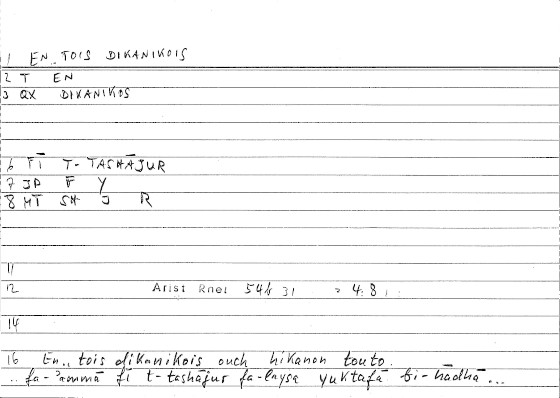 1 EN.. TOIS DIKANIKOIS
2 T EN
3 QX DIKANIKOS
6 FĪ T-TASHĀJUR
7 JP F Y
8 MT SH J R
11
12 Arist Rhet 54b 31 = 4.8
14
16 En.. tois dikanikois ouch hikanon touto.
.. fa-'ammā fī t-tashājur fa-laysa yuktafā bi-hādhā...